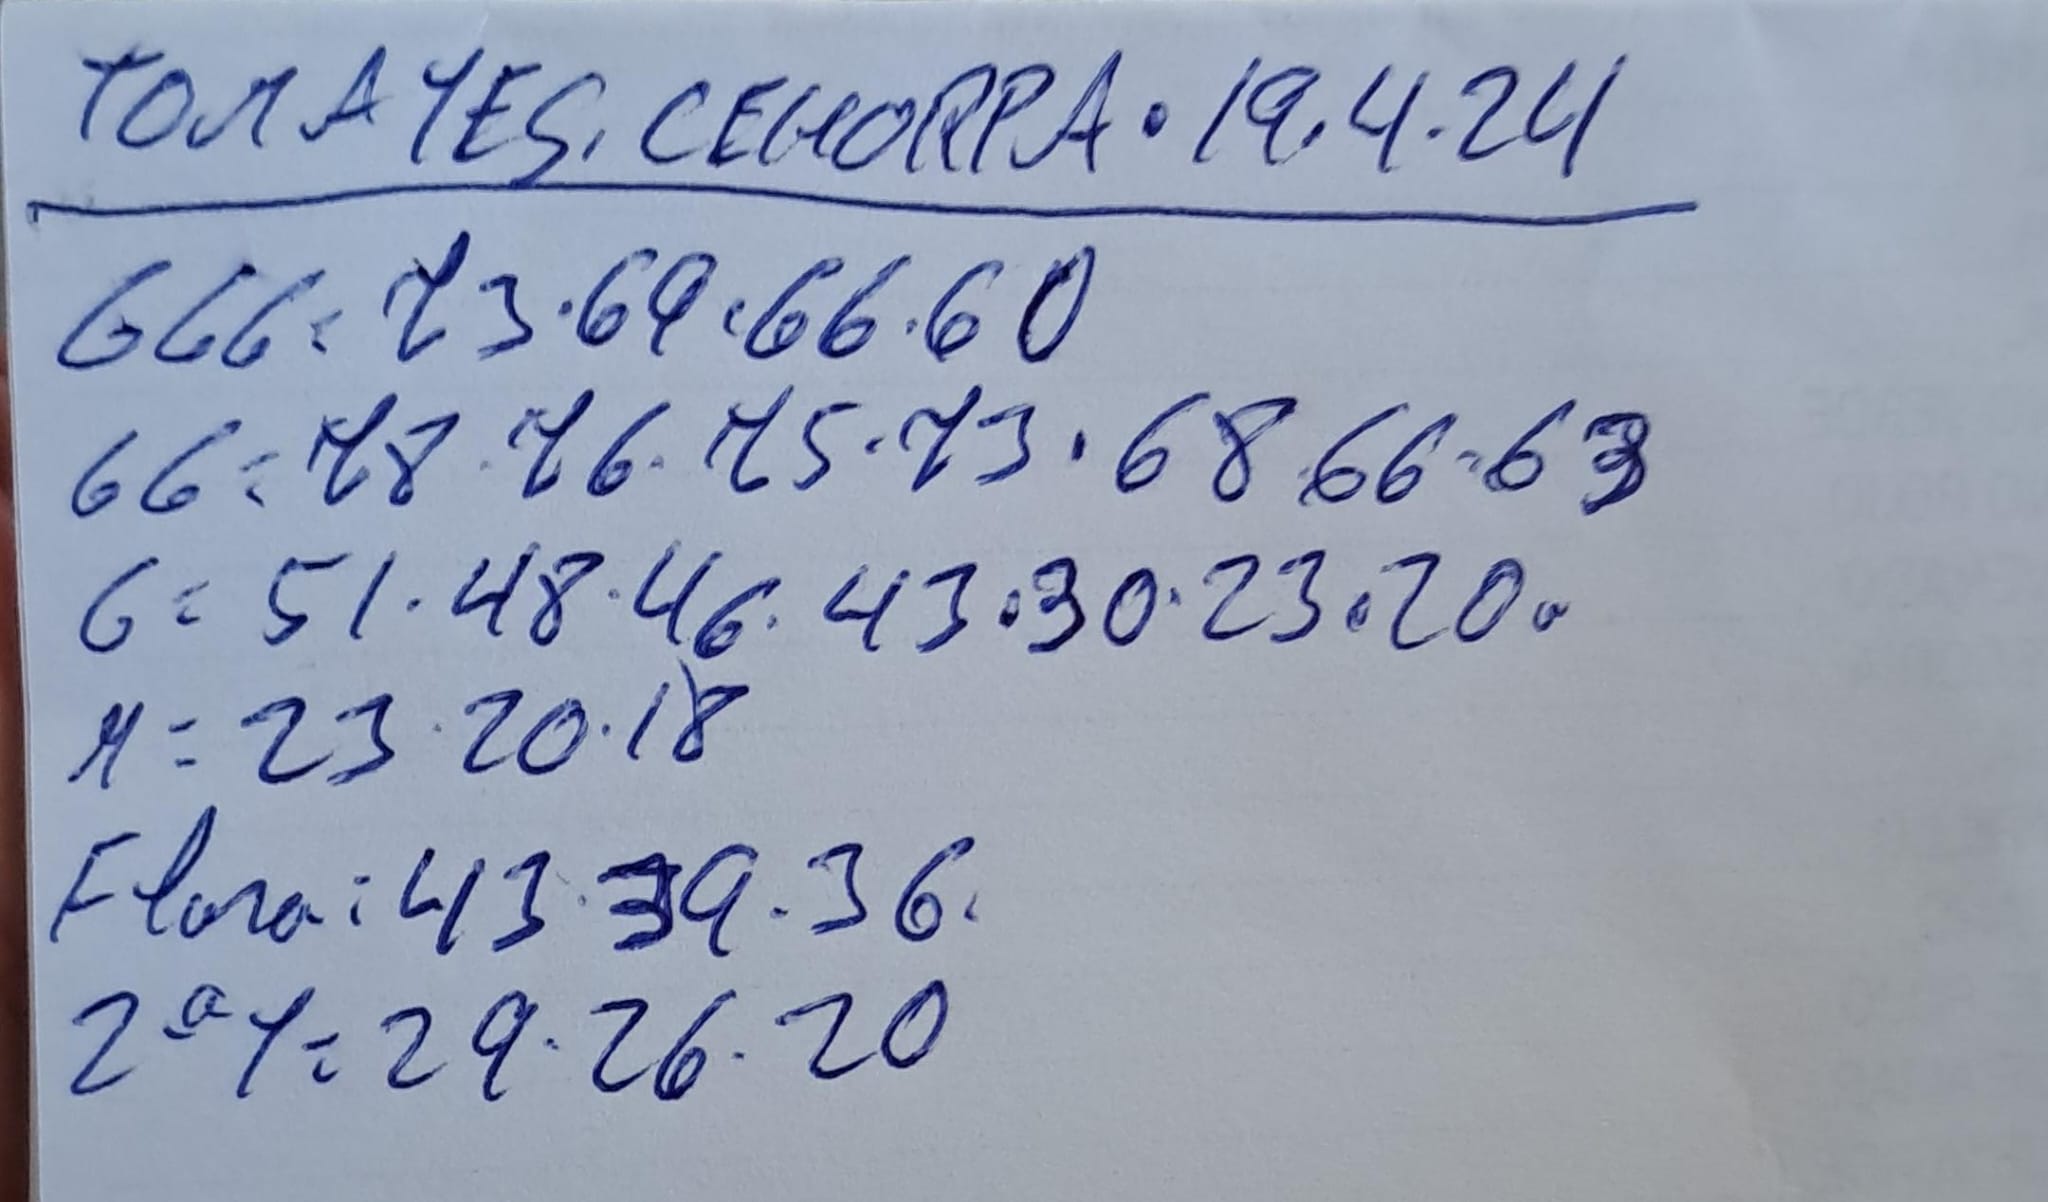 TOMATES. CEHORPA. 19.4.24
GGG = 73.69.66.60
GG = 78.76.75.73.68.66.63
G = 51.48.46.43.30.23.20.
M = 23.20.18
Flora: 43.39.36.
2ª Y = 29.26.20